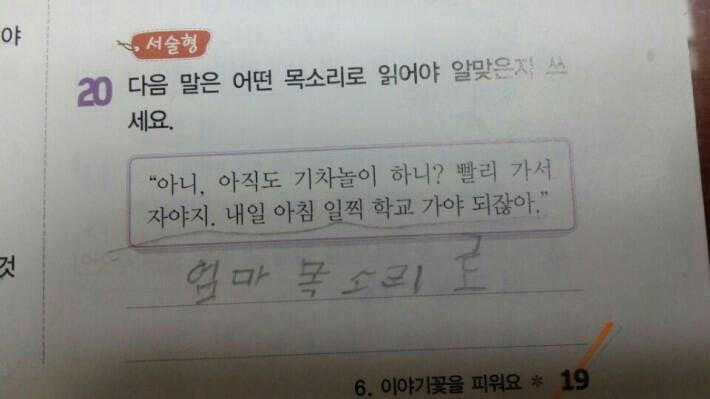 야
서술형
20 다음 말은 어떤 목소리로 읽어야 알맞은지 쓰
세요.
“아니, 아직도 기차놀이 하니? 빨리 가서
자야지. 내일 아침 일찍 학교 가야 되잖아.”
것
엄마 목소리로
6. 이야기꽃을 피워요 * 19